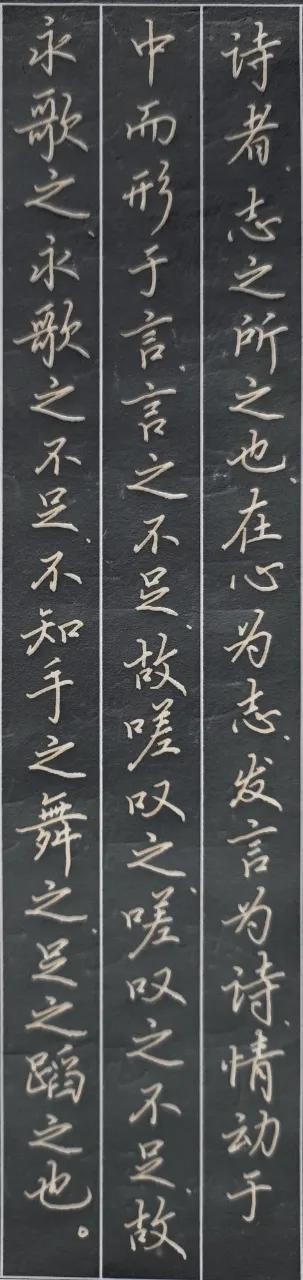 诗者、志之所之也、在心为志、发言为诗、情动于
中而形于言、言之不足、故嗟叹之、嗟叹之不足、故
永歌之、永歌之不足、不知手之舞之、足之蹈之也。